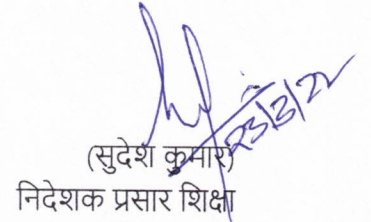 23/3/22
(सुदेश कुमार)
निदेशक प्रसार शिक्षा